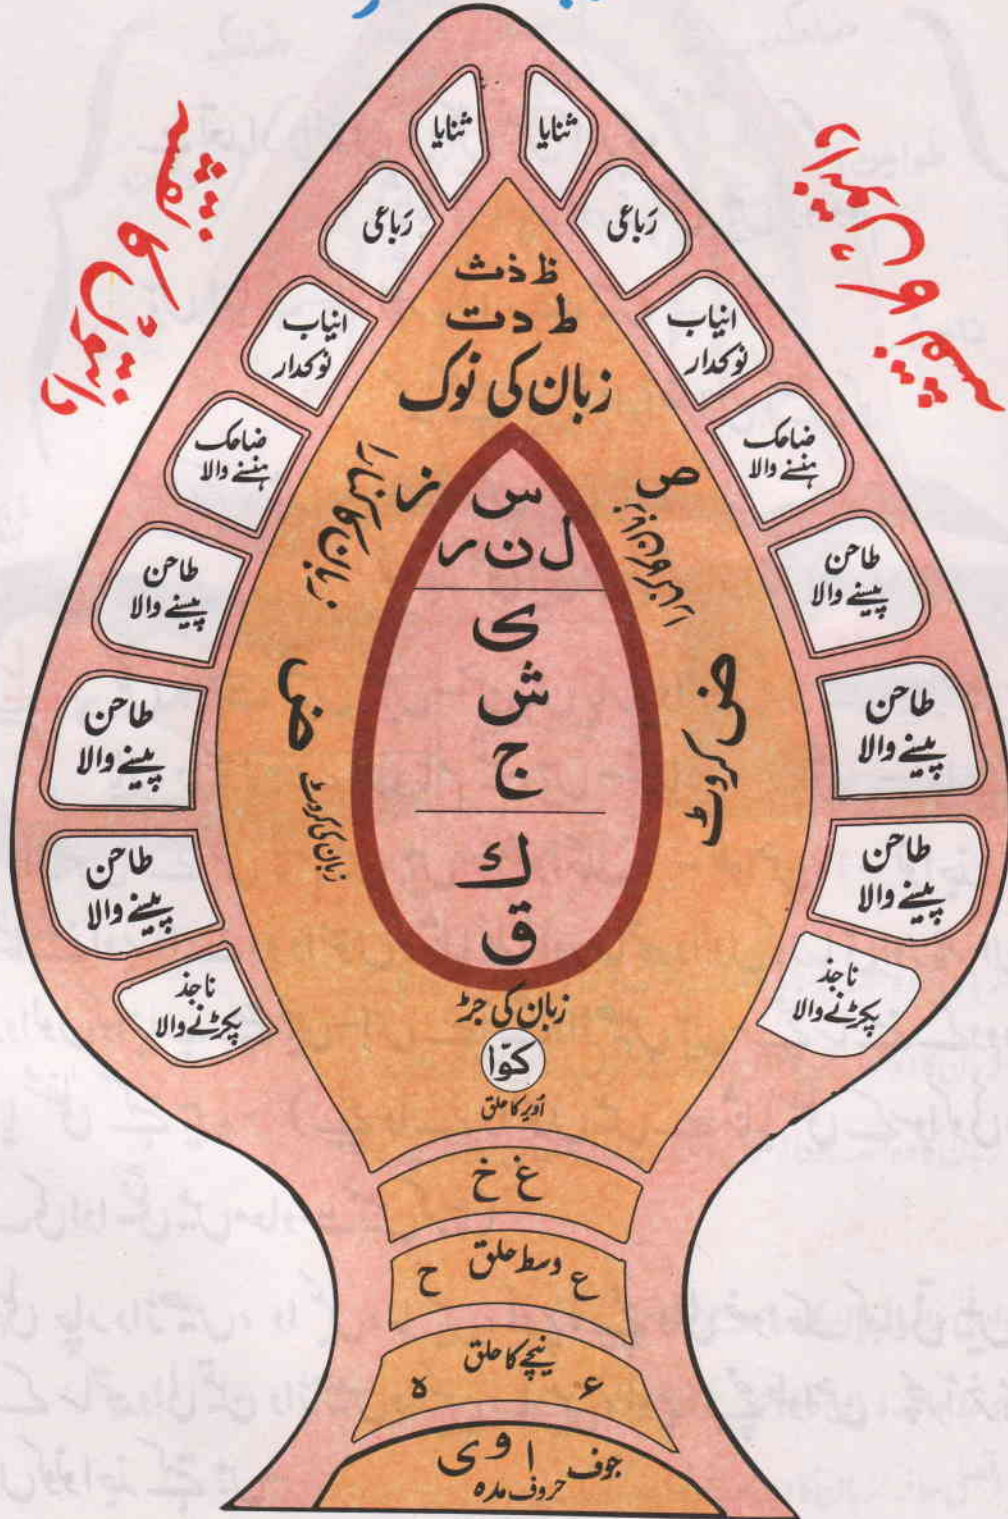 دانتوں کا نقشہ
ثنایا
ثنایا
رَباعی
رَباعی
انیاب
نوکدار
انیاب
نوکدار
ضاحک
ہنسنے والا
ضاحک
ہنسنے والا
طاحن
پیسنے والا
طاحن
پیسنے والا
طاحن
پیسنے والا
طاحن
پیسنے والا
طاحن
پیسنے والا
طاحن
پیسنے والا
ناجذ
پکڑنے والا
ناجذ
پکڑنے والا
ظ ذ ث
ط د ت
زبان کی نوک
ص
ز
س
ل ن ر
ی
ش
ج
ك
ق
ض کروٹ
ض
زبان کی کروٹ
زبان کی جڑ
کوّا
اُوپر کا حلق
غ خ
ع وسط حلق ح
نیچے کا حلق
ء ه
جوف ا و ی
حروف مدہ